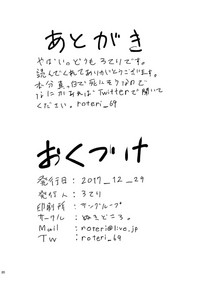 あとがき
やばい。どうもろてりです。
読んでくれてありがとうございます。
本分真っ日で死にそうなので
なにかあれば Twitterで聞いて
ください。roteri_69
おくづけ
発行日：2017_12_29
発行人：ろてり
印刷所：サングループ
サークル：ぬきどころ。
Mail：roteri@live.jp
TW：roteri_69